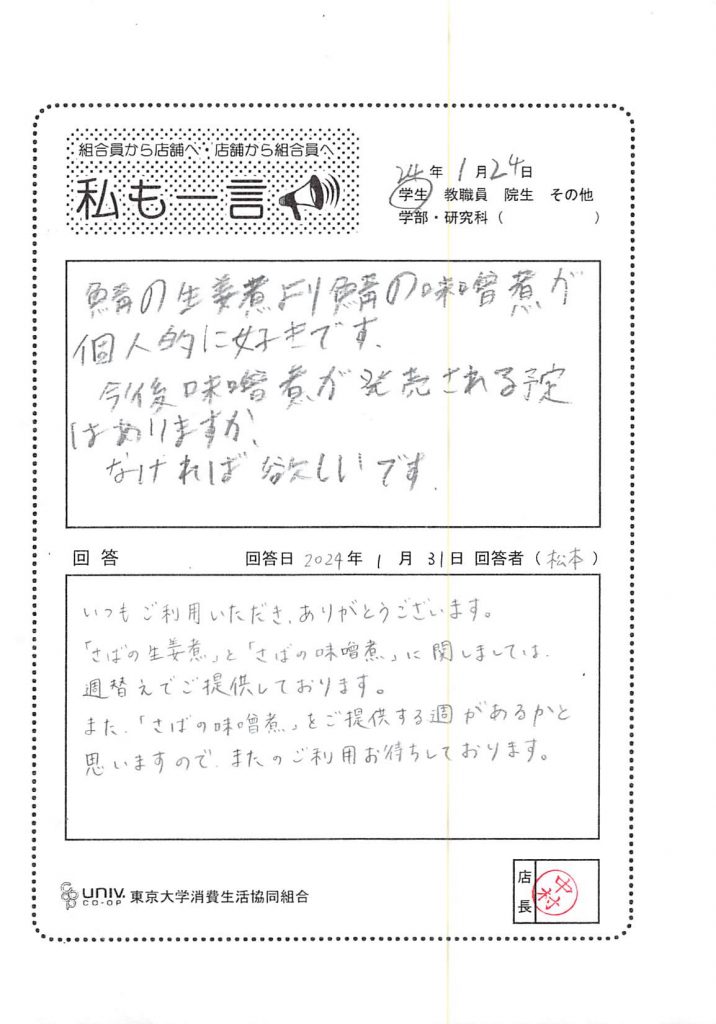 組合員から店舗へ・店舗から組合員へ
私も一言
24年1月24日
学生 教職員 院生 その他
学部・研究科( )
鯖の生姜煮より鯖の味噌煮が
個人的に好きです.
今後味噌煮が発売される予定
はありますか.
なければ欲しいです.
回答 回答日 2024年 1月 31日 回答者(松本)
いつもご利用いただき、ありがとうございます。
「さばの生姜煮」と「さばの味噌煮」に関しましては、
週替えでご提供しております。
また、「さばの味噌煮」をご提供する週があるかと
思いますので、またのご利用お待ちしております。
UNIV. CO-OP 東京大学消費生活協同組合
店長 中村